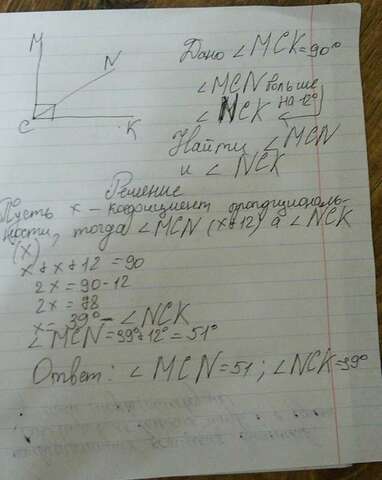 M
N
C
K
Дано ∠MCK=90°
∠MCN больше
∠NCK на 12°
Найти ∠MCN
и ∠NCK
Решение
Пусть x - коэфициент пропдициональ-
ности, тогда ∠MCN (x+12) а ∠NCK
(x)
x+x+12=90
2x=90-12
2x=78
x=39°-∠NCK
∠MCN=39°+12°=51°
Ответ: ∠MCN=51; ∠NCK=39°